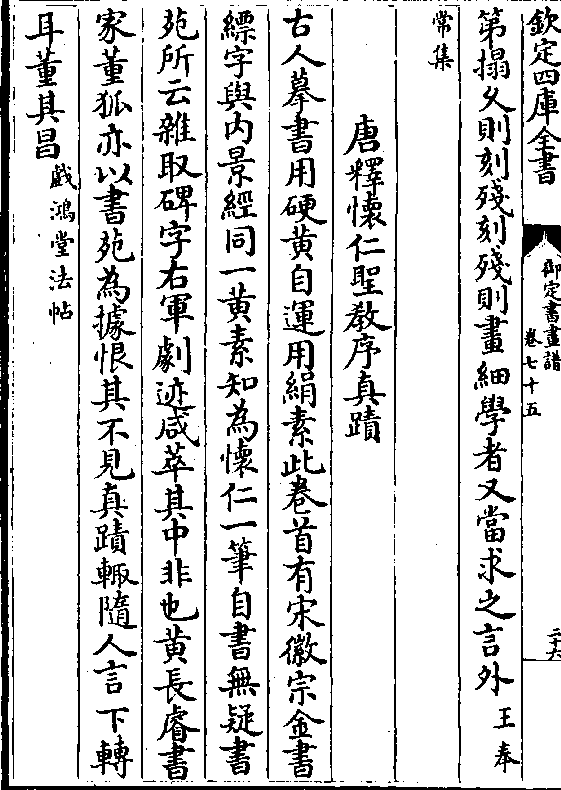 欽定四庫全書
御定書畫譜
卷七十五
二十六
第搨久則刻殘刻殘則畫細學者又當求之言外王奉
常集
唐釋懷仁聖教序真蹟
古人摹書用硬黄自運用絹素此卷首有宋徽宗金書
縹字與内景經同一黄素知為懷仁一筆自書無疑書
苑所云雜取碑字右軍劇迹咸萃其中非也黄長睿書
家董狐亦以書苑為據恨其不見真蹟輙隨人言下轉
耳董其昌戲鴻堂法帖